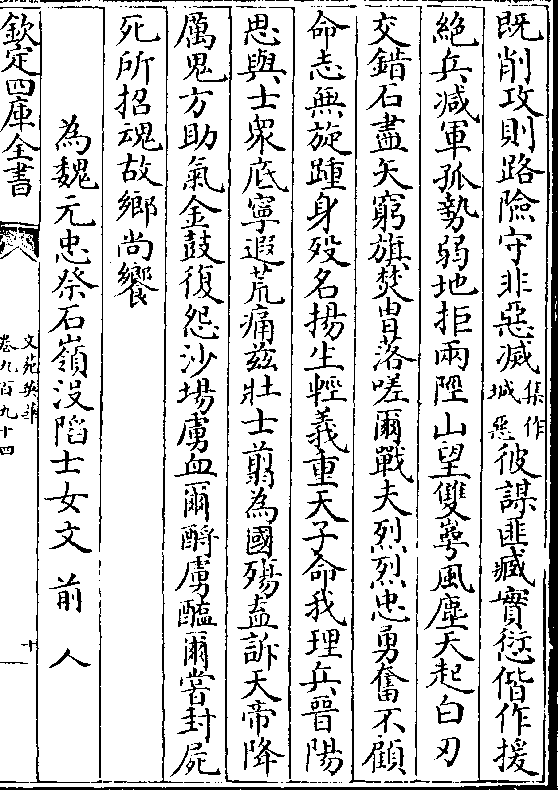 既削攻則路險守非惡滅集作城惡彼謀匪臧實愆偕作援
絶兵减軍孤勢弱地拒兩陘山望雙崿風塵天起白刃
交錯石盡矢窮旗焚胄落嗟爾戰夫烈烈忠勇奮不顧
命志無旋踵身殁名揚生輕義重天子命我理兵晉陽
思與士衆底寧遐荒痛兹壯士翦為國殤盍訴天帝降
厲鬼方助氣金鼓復怨沙場虜血爾酹虜醢爾嘗封屍
死所招魂故鄉尚饗
為魏元忠祭石嶺没陷士女文 前人
欽定四庫全書
文苑英華
卷九百九十四
十